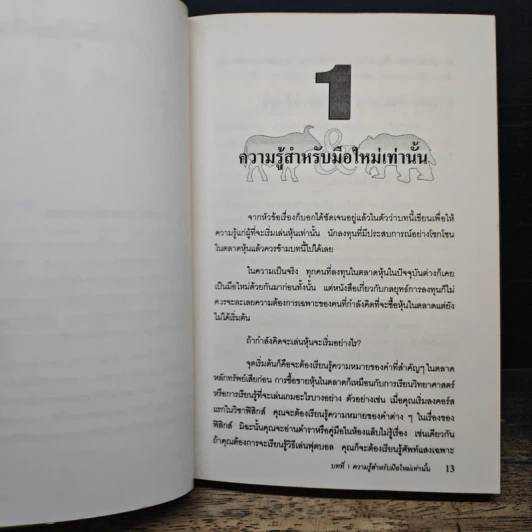 1
&
ความรู้สำหรับมือใหม่เท่านั้น
จากหัวข้อเรื่องก็บอกได้ชัดเจนอยู่แล้วในตัวว่าบทนี้เขียนเพื่อให้
ความรู้แก่ผู้ที่จะเริ่มเล่นหุ้นเท่านั้น นักลงทุนที่มีประสบการณ์อย่างโชกโชน
ในตลาดหุ้นแล้วควรข้ามบทนี้ไปได้เลย
ในความเป็นจริง ทุกคนที่ลงทุนในตลาดหุ้นในปัจจุบันต่างก็เคย
เป็นมือใหม่ด้วยกันมาก่อนทั้งนั้น แต่หนังสือเกี่ยวกับกลยุทธ์การลงทุนก็ไม่
ควรจะละเลยความต้องการเฉพาะของคนที่กำลังคิดที่จะซื้อหุ้นในตลาดแต่ยัง
ไม่ได้เริ่มต้น
ถ้ากำลังคิดจะเล่นหุ้นจะเริ่มอย่างไร?
จุดเริ่มต้นก็คือจะต้องเรียนรู้ความหมายของคำที่สำคัญๆ ในตลาด
หลักทรัพย์เสียก่อน การซื้อขายหุ้นในตลาดก็เหมือนกับการเรียนวิทยาศาสตร์
หรือการเรียนรู้ที่จะเล่นเกมอะไรบางอย่าง ตัวอย่างเช่น เมื่อคุณเริ่มลงคอร์ส
แรกในวิชาฟิสิกส์ คุณจะต้องเรียนรู้ความหมายของคำต่าง ๆ ในเรื่องของ
ฟิสิกส์ มิฉะนั้นคุณจะอ่านตำราหรือคู่มือในห้องแล็บไม่รู้เรื่อง เช่นเดียวกัน
ถ้าคุณต้องการจะเรียนรู้วิธีเล่นฟุตบอล คุณก็จะต้องเรียนรู้ศัพท์แสงเฉพาะ
บทที่ 1 ความรู้สำหรับมือใหม่เท่านั้น 13